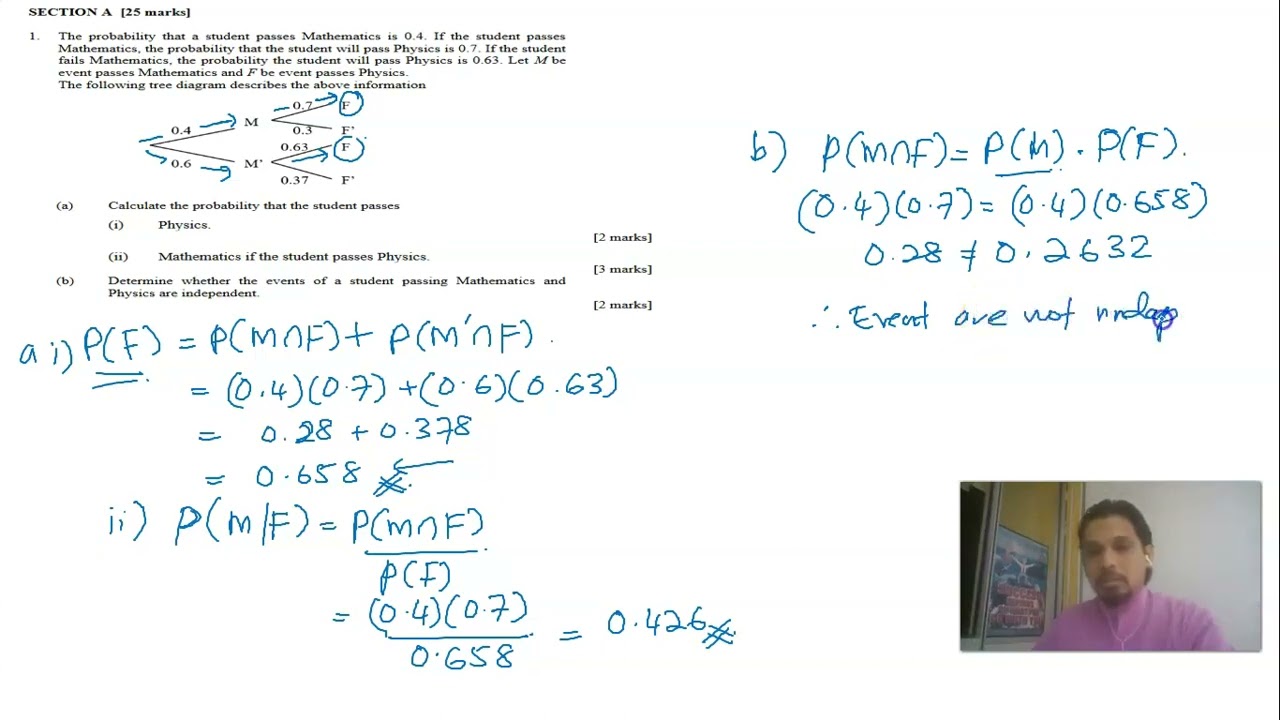 SECTION A [25 marks]
1. The probability that a student passes Mathematics is 0.4. If the student passes
Mathematics, the probability that the student will pass Physics is 0.7. If the student
fails Mathematics, the probability the student will pass Physics is 0.63. Let M be
event passes Mathematics and F be event passes Physics.
The following tree diagram describes the above information
0.7 F
0.4 M
0.3 F'
0.63 F
0.6 M'
0.37 F'
(a) Calculate the probability that the student passes
(i) Physics.
[2 marks]
(ii) Mathematics if the student passes Physics.
[3 marks]
(b) Determine whether the events of a student passing Mathematics and
Physics are independent.
[2 marks]
a i) P(F) = P(M∩F) + P(M'∩F).
= (0.4)(0.7) + (0.6)(0.63)
= 0.28 + 0.378
= 0.658
ii) P(M/F) = P(M∩F)
P(F)
= (0.4)(0.7)
0.658
= 0.426
b) P(M∩F) = P(M) . P(F).
(0.4)(0.7) = (0.4)(0.658)
0.28 ≠ 0.2632
∴ Event are not indep